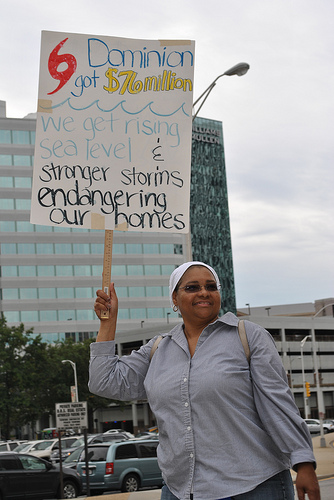 Dominion
got $76 million
we get rising
sea level &
stronger storms
endangering
our homes
PRIVATE PARKING